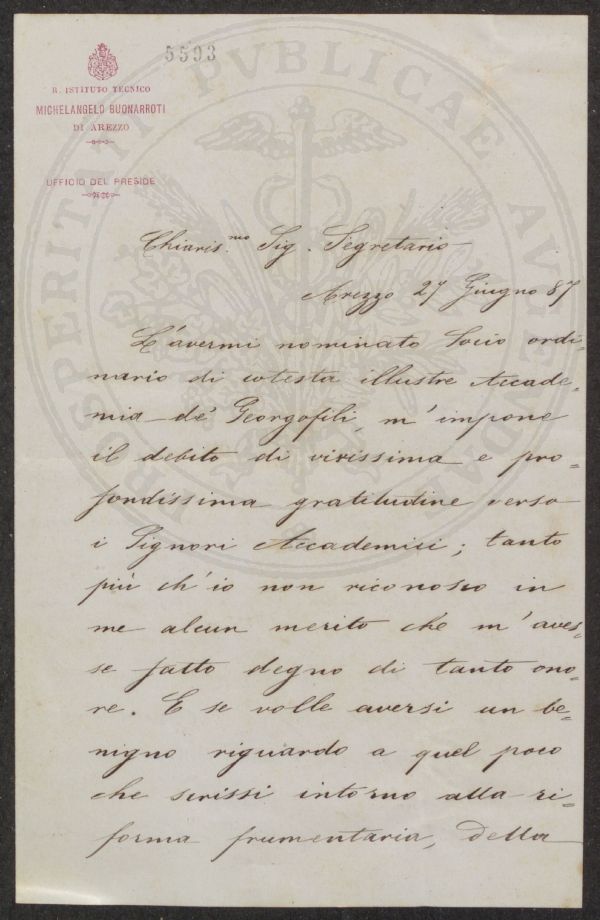 5593
R. ISTITUTO TECNICO
MICHELANGELO BUONARROTI
DI AREZZO
UFFICIO DEL PRESIDE
PROSPERITATI PVBLICAE AVGENDAE
Chiaris.mo Sig. Segretario
Arezzo 27 Giugno 87
L'avermi nominato Socio ordi=
nario di cotesta illustre Accade=
mia de' Georgofili, m'impone
il debito di vivissima e pro=
fondissima gratitudine verso
i Signori Accademici; tanto
più ch'io non riconosco in
me alcun merito che m'aves=
se fatto degno di tanto ono=
re. E se volle aversi un be=
nigno riguardo a quel poco
che scrissi intorno alla ri=
forma frumentaria, della